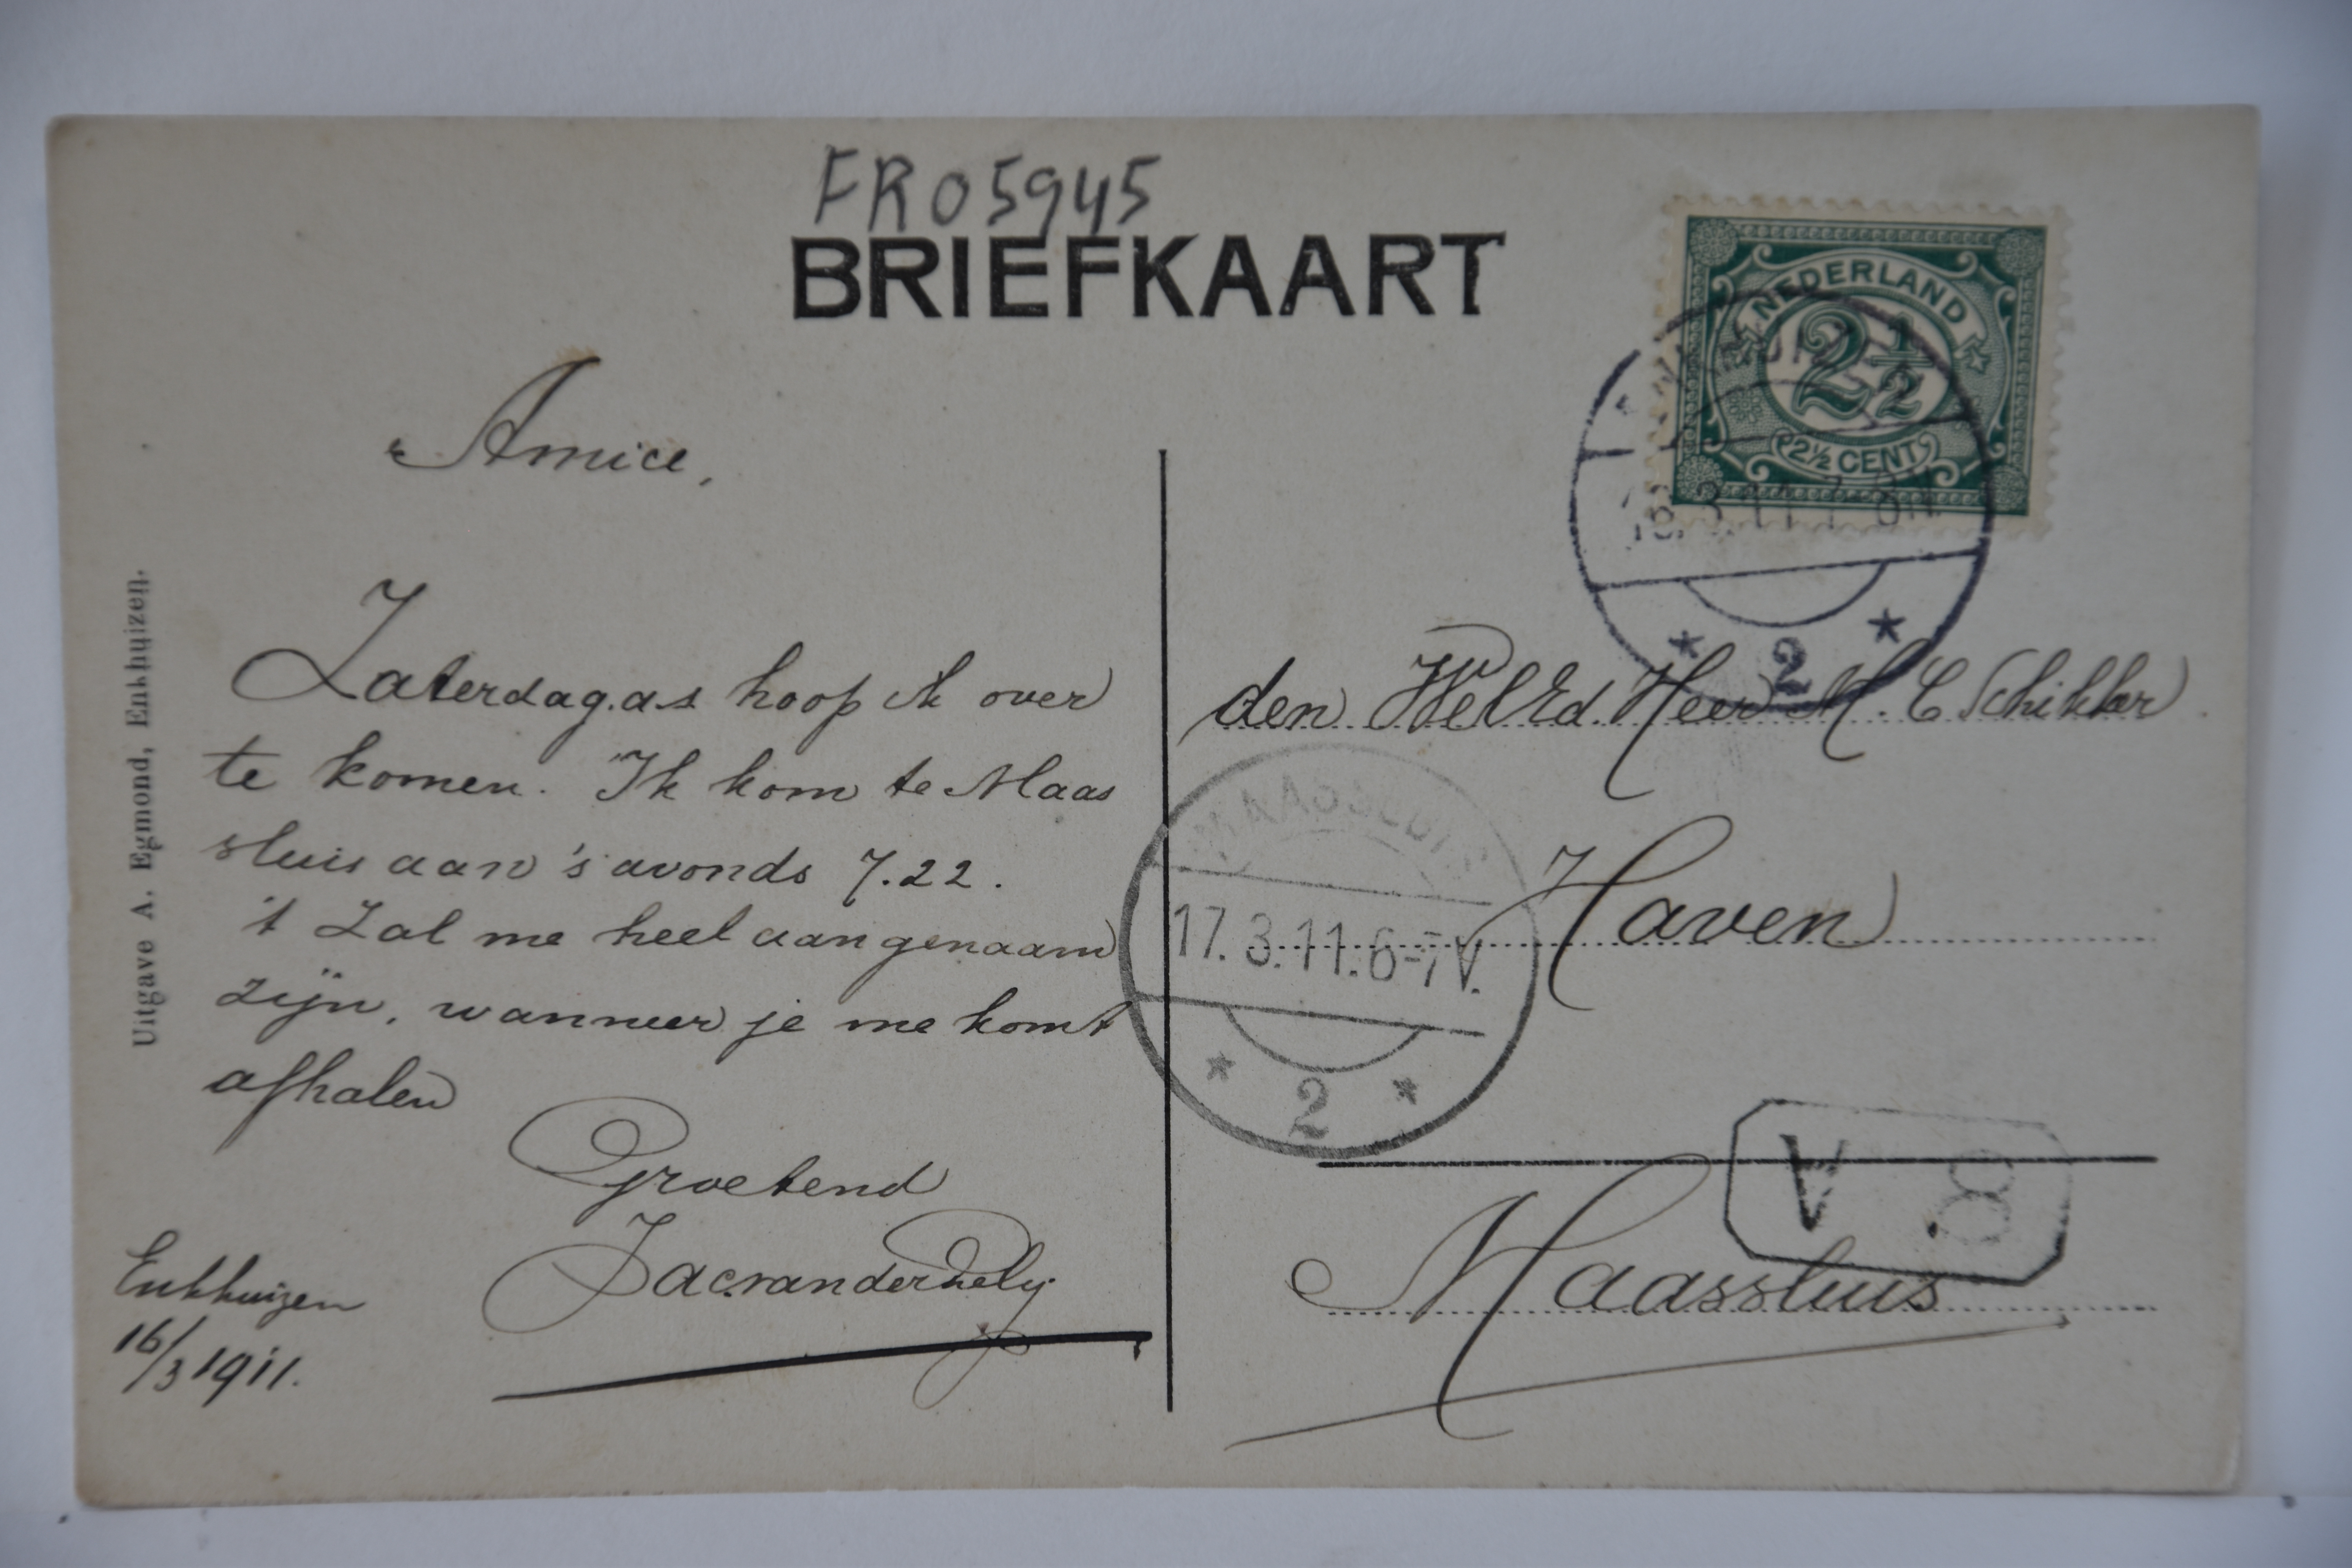 FR05945
BRIEFKAART
NEDERLAND
2½
2½ CENT
16.3.11.7-8N
2
Amice,
Zaterdag.a.s hoop ik over
te komen. Ik kom te Maas
sluis aan 's avonds 7.22.
't Zal me heel aangenaam
zijn, wanneer je me komt
afhalen
Groetend
Jac.vander
Enkhuizen
16/3 1911.
Uitgave A. Egmond, Enkhuizen.
den WelEd. Heer M. C Schikker
Haven
Maassluis
MAASSLUIS
17.3.11.6-7V.
2
V 8